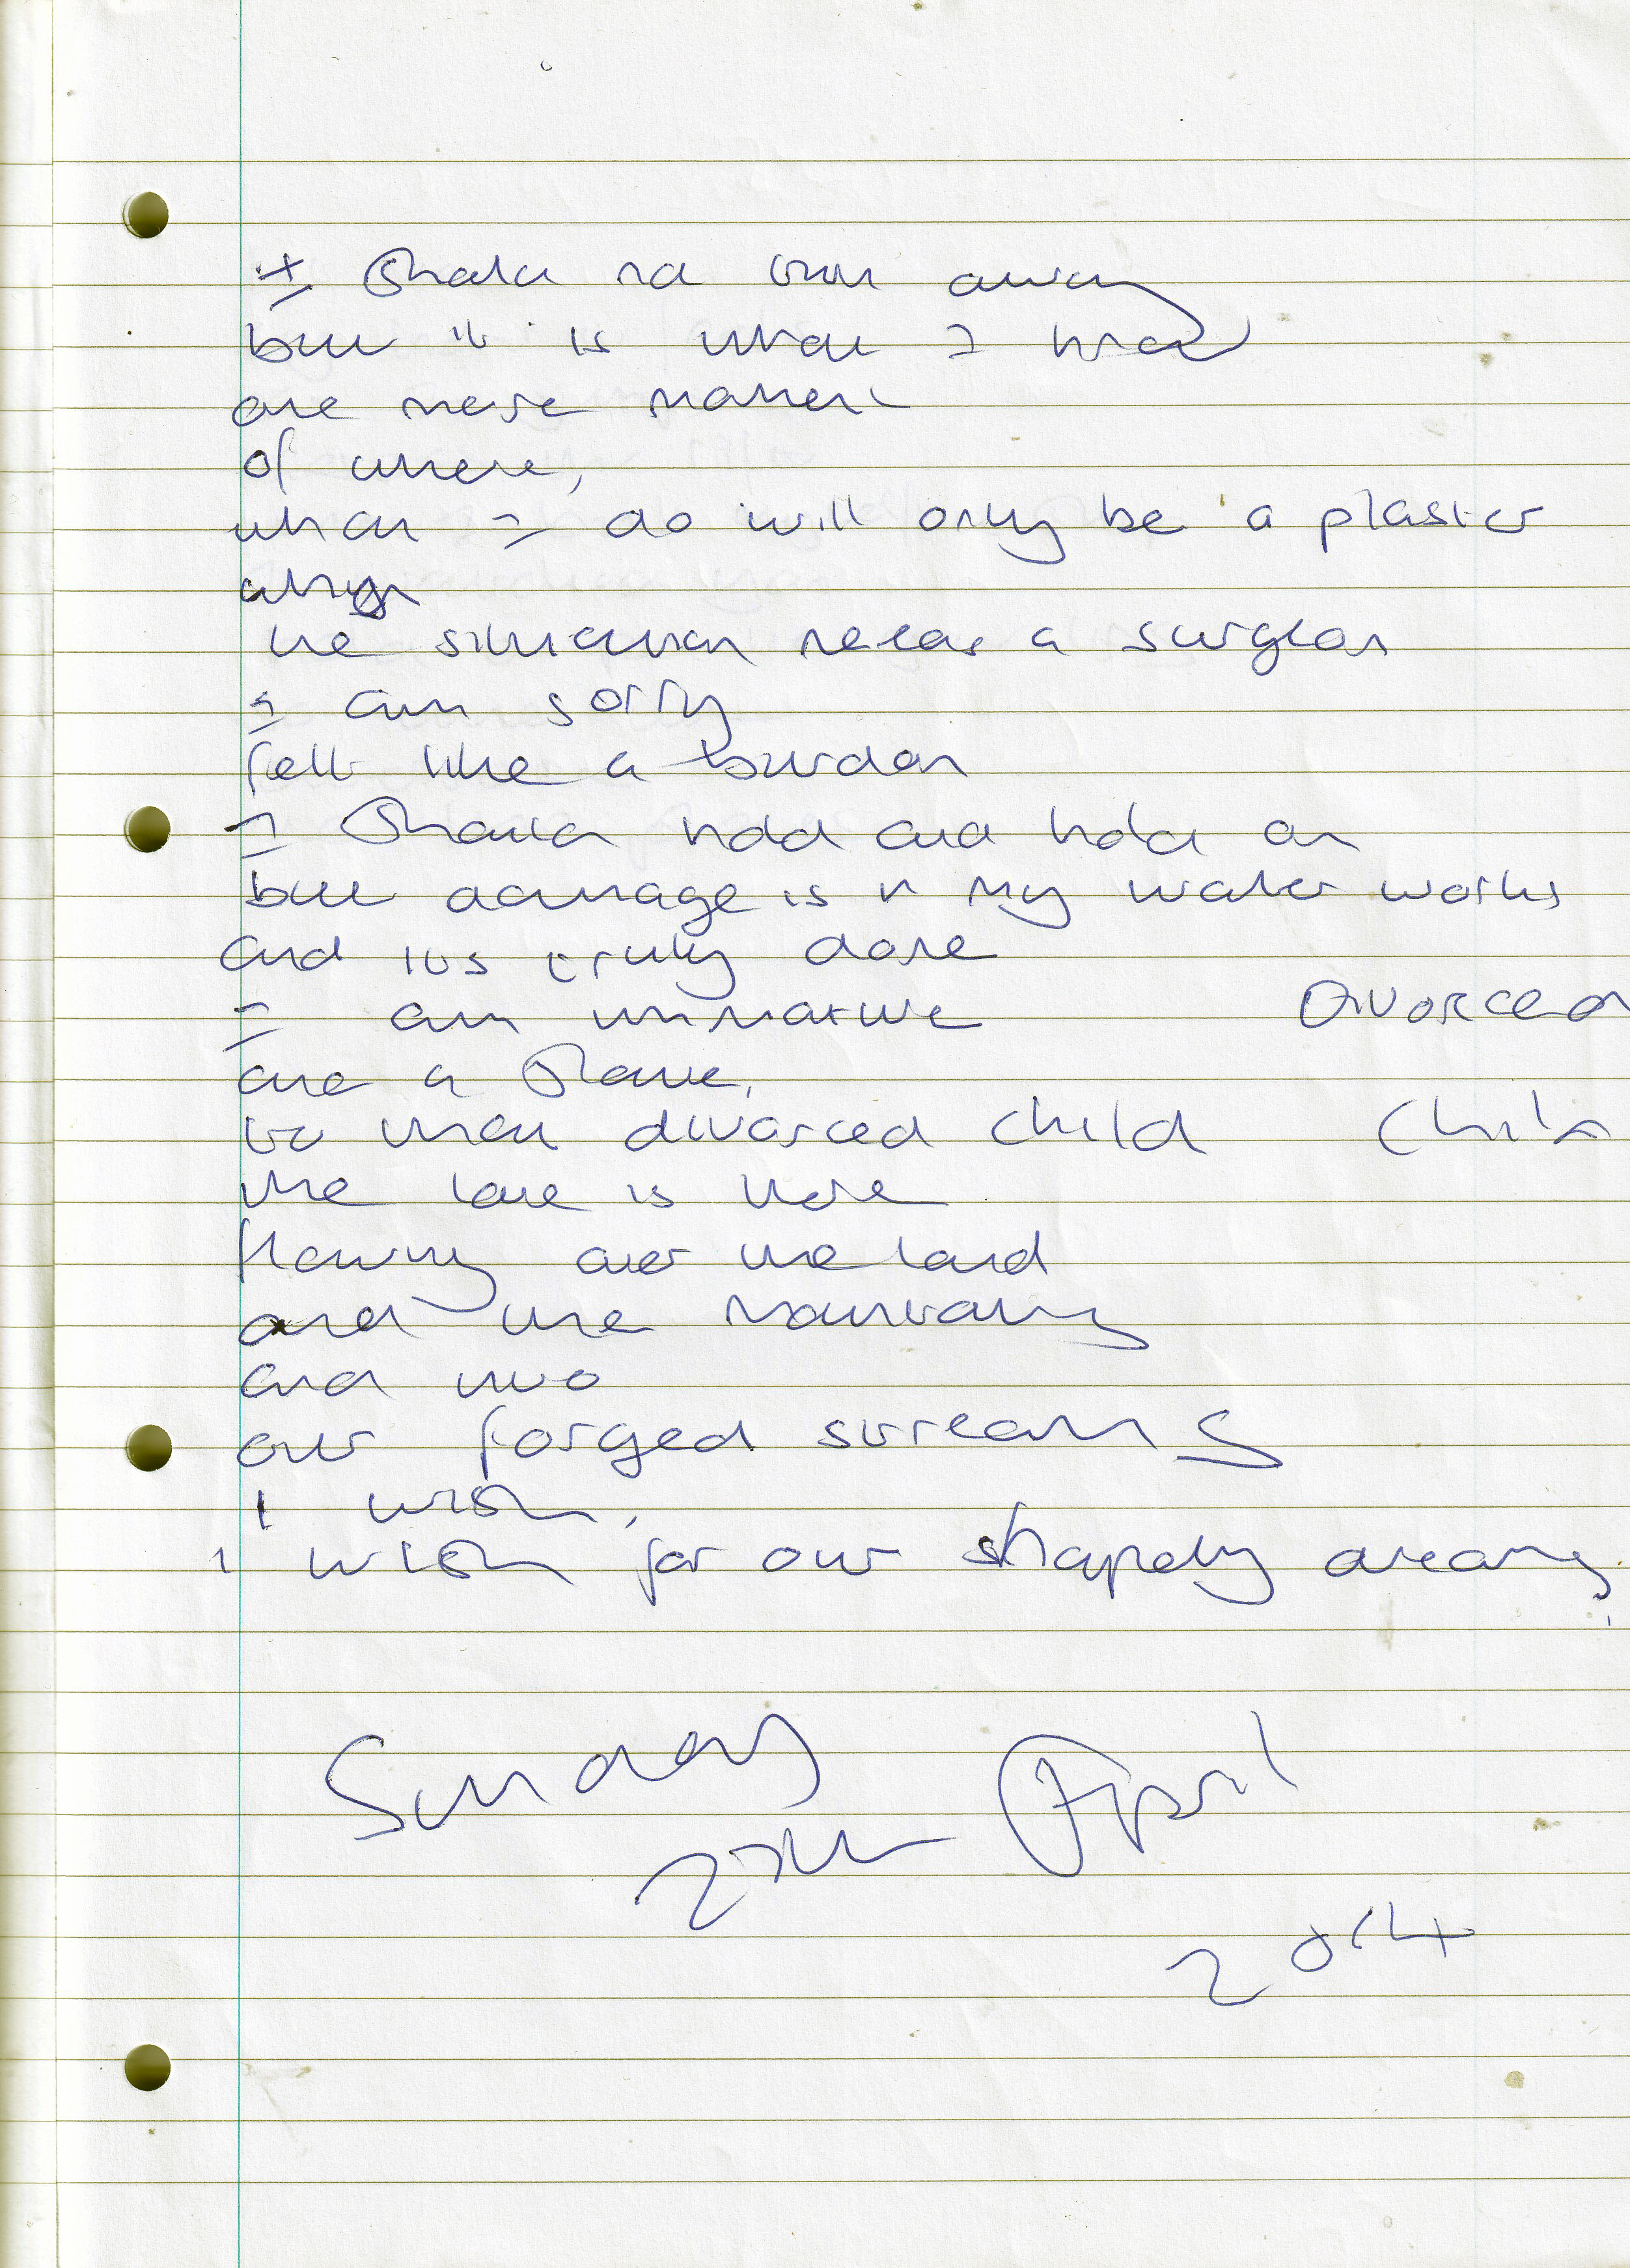 I should not turn away
but it is what I had
are
of where,
what I do will only be a plaster
when
the situation needs a surgeon
I am sorry
felt like a burden
I should hold and hold on
but damage is in my water works
and its truly done
I am immature Divorced
are a
to that divorced child Child
the love is there
flowing over the land
and the mountains
and into
our forged streams
I wish,
I wish for our shapely dreams,
Sunday
27th April
2014